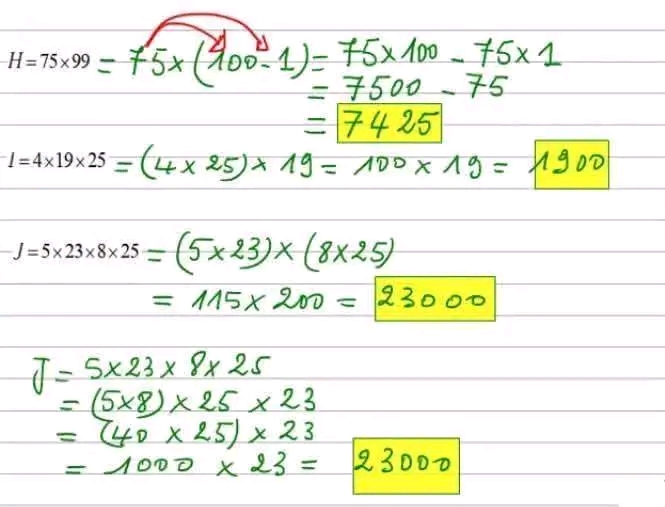 H = 75×99 = 75×(100-1) = 75×100 - 75×1
= 7500 - 75
= 7425
I = 4×19×25 = (4×25)×19 = 100×19 = 1900
J = 5×23×8×25 = (5×23)×(8×25)
= 115×200 = 23000
J = 5×23×8×25
= (5×8)×25×23
= (40×25)×23
= 1000×23 = 23000